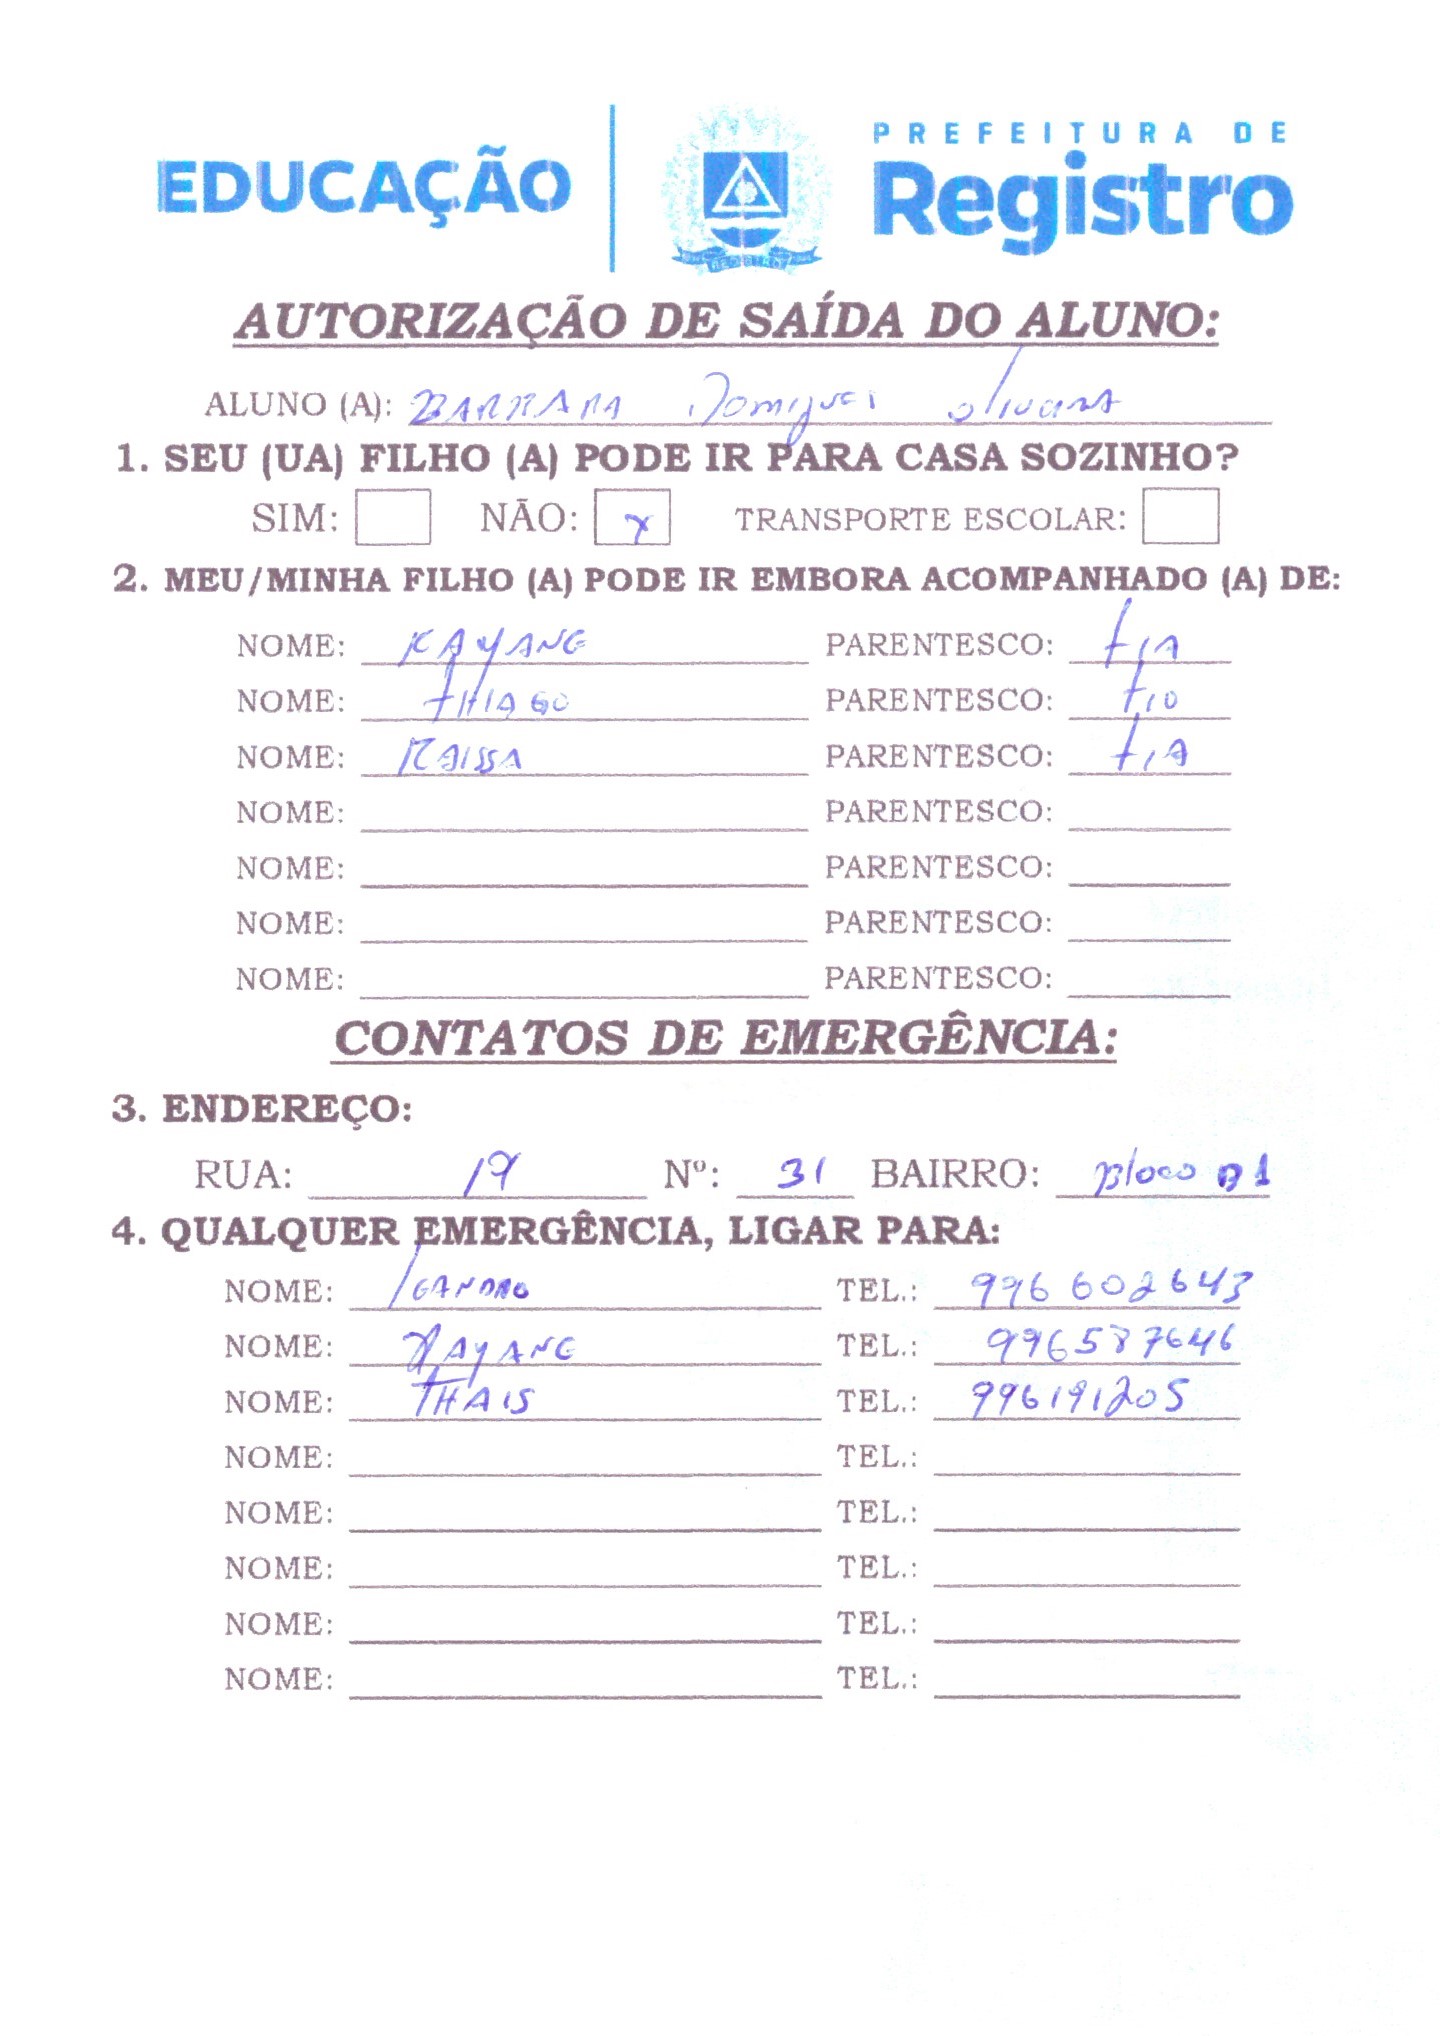 EDUCAÇÃO
PREFEITURA DE
Registro
REGISTRO
AUTORIZAÇÃO DE SAÍDA DO ALUNO:
ALUNO (A): BARBARA Domigues oliveira
1. SEU (UA) FILHO (A) PODE IR PARA CASA SOZINHO?
SIM: NÃO: X TRANSPORTE ESCOLAR:
2. MEU/MINHA FILHO (A) PODE IR EMBORA ACOMPANHADO (A) DE:
NOME: KAYANE PARENTESCO: tIA
NOME: tHIAGO PARENTESCO: tIO
NOME: RAISSA PARENTESCO: tIA
NOME: PARENTESCO:
NOME: PARENTESCO:
NOME: PARENTESCO:
NOME: PARENTESCO:
CONTATOS DE EMERGÊNCIA:
3. ENDEREÇO:
RUA: 19 Nº: 31 BAIRRO: Bloco B1
4. QUALQUER EMERGÊNCIA, LIGAR PARA:
NOME: TEL.: 996602643
NOME: KAYANE TEL.: 996587646
NOME: THAIS TEL.: 996191205
NOME: TEL.:
NOME: TEL.:
NOME: TEL.:
NOME: TEL.:
NOME: TEL.: